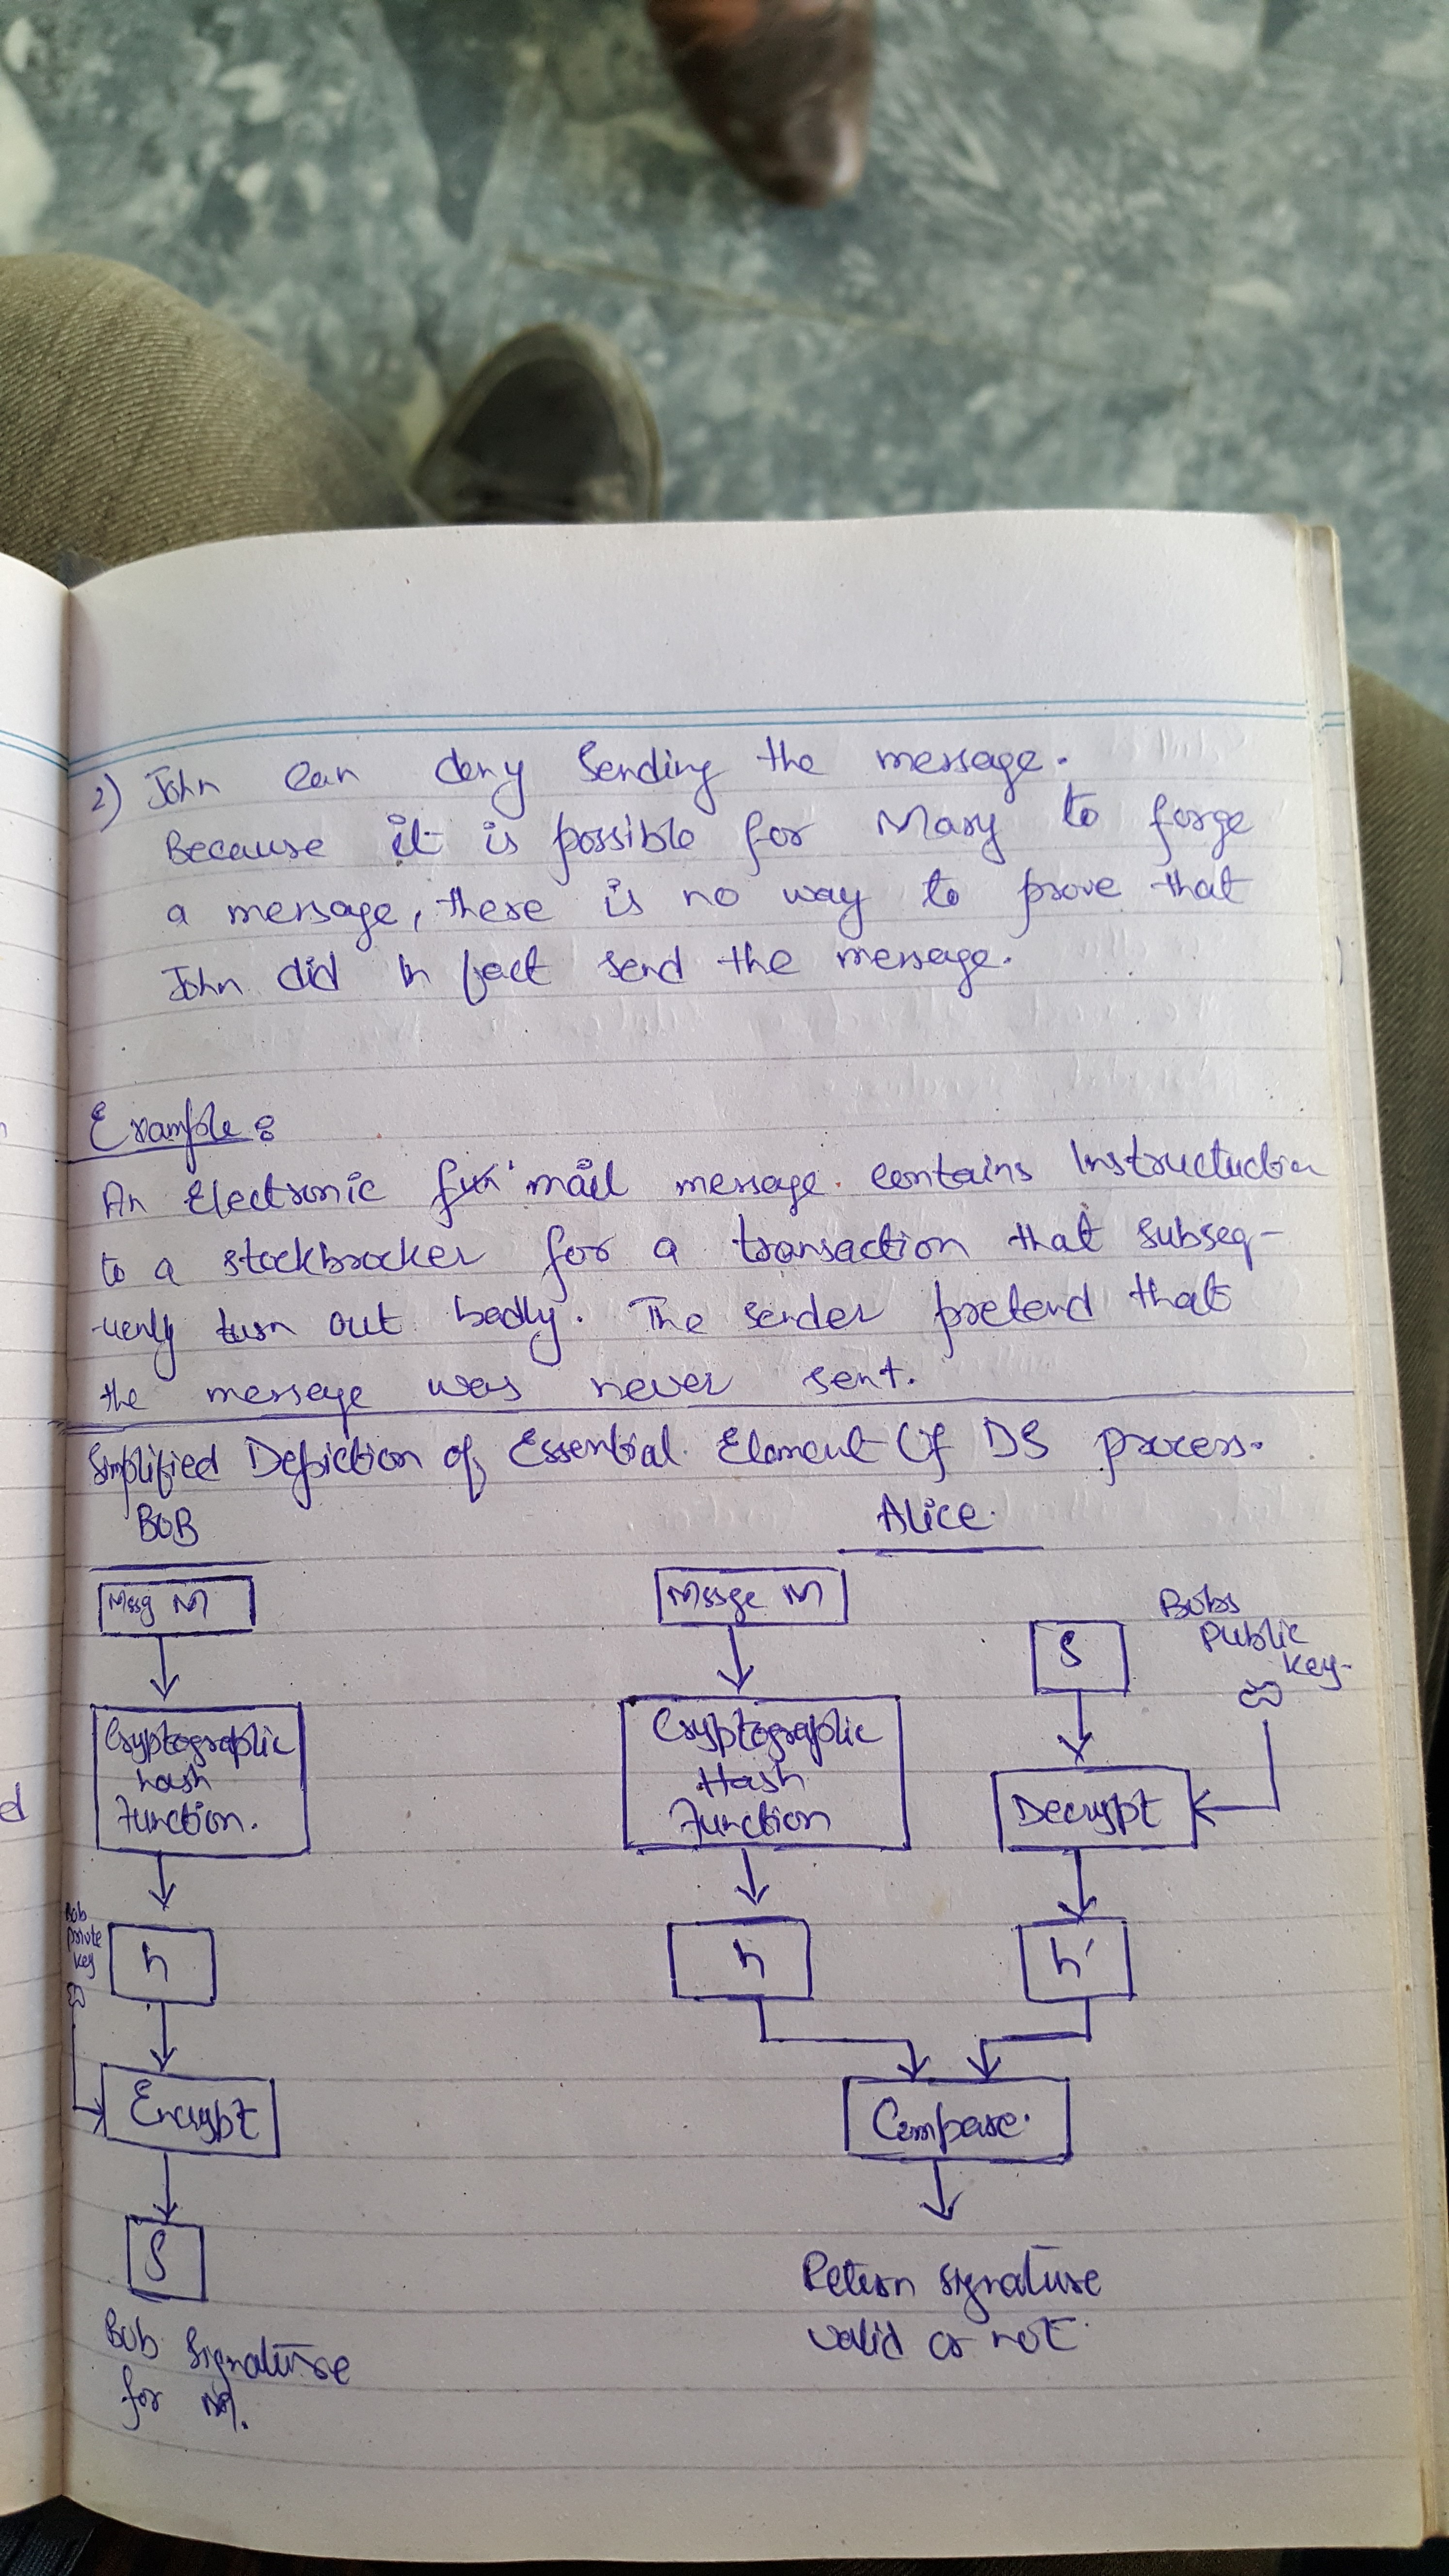 2) John can deny sending the message.
Because it is possible for Mary to forge
a message, there is no way to prove that
John did in fact send the message.
Example:
An Electronic mail message contains Instructuction
to a stockbrocker for a transaction that subseq-
-uenly turn out badly. The sender pretend that
the message was never sent.
Simplified Depiction of Essential Element Of DS process.
BOB
Alice.
Mssg M
Cryptographic
hash
Function.
Bob
private
key
h
Encrypt
S
Bob signature
for M.
Mssge M
Cryptographic
Hash
Function
h
S
Bobs
Public
key
Decrypt
h'
Compare.
Return signature
valid or not